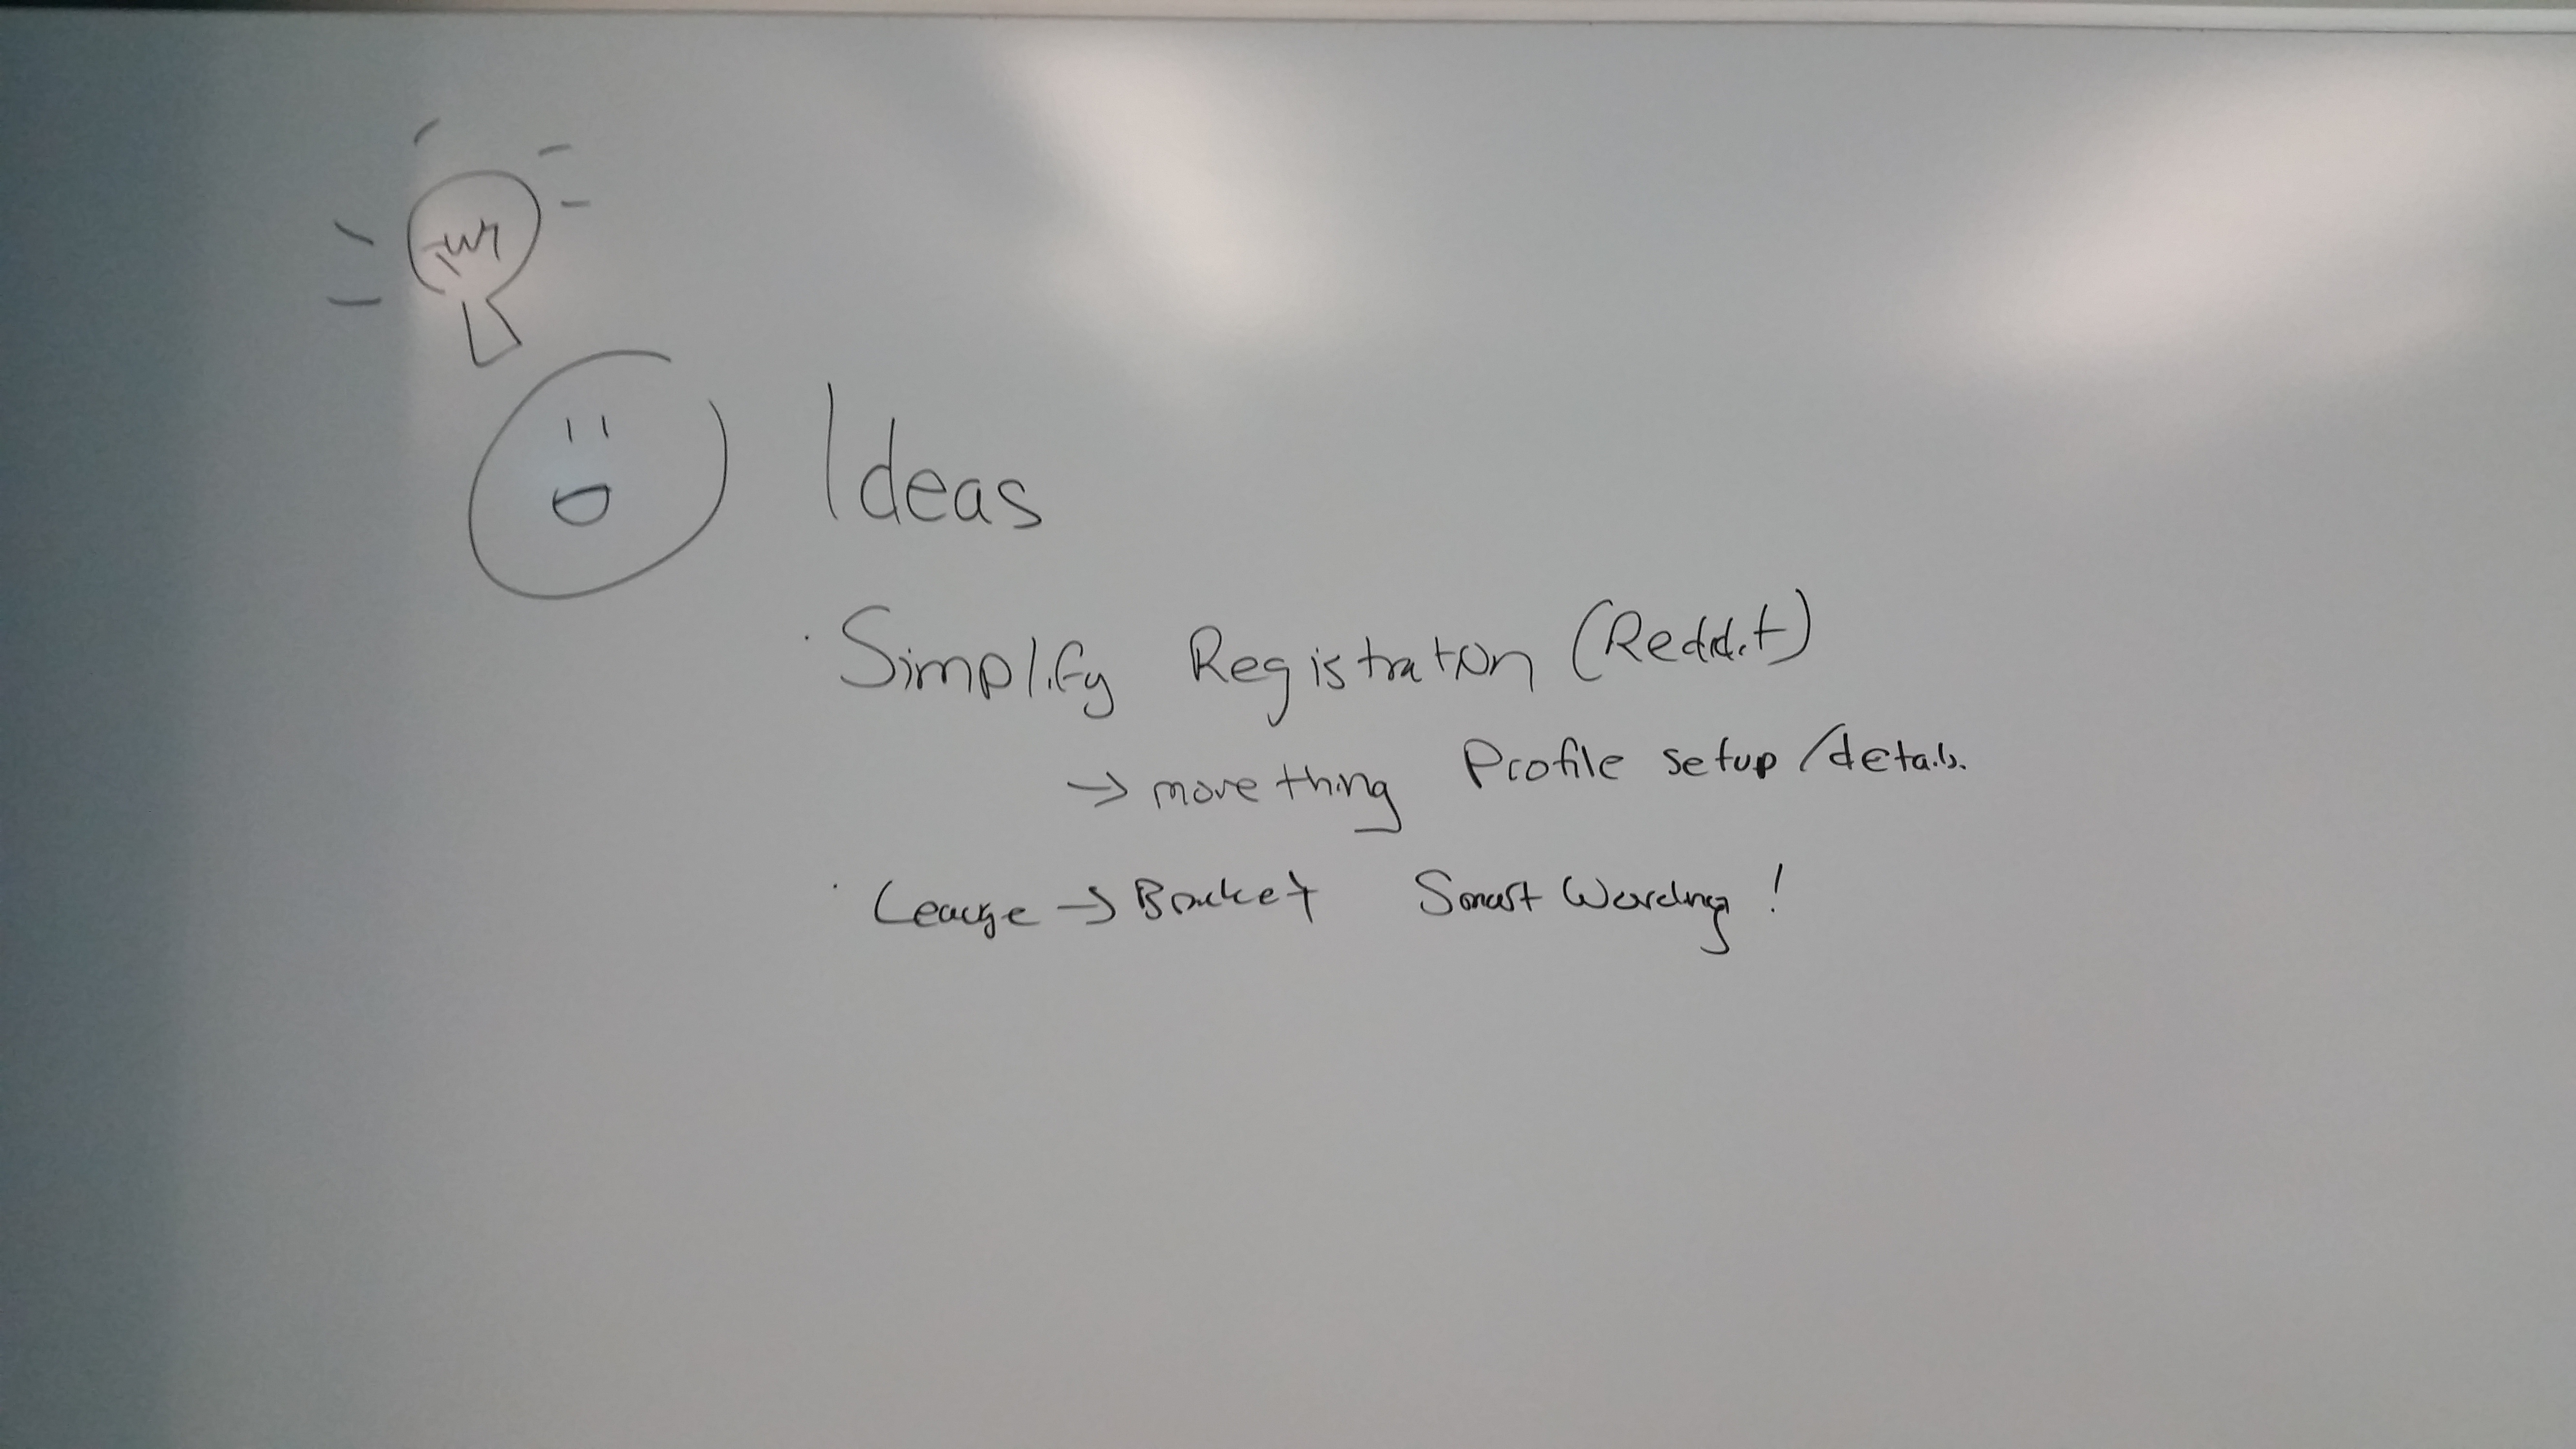 Ideas
· Simplify Registration (Reddit)
→ move thing Profile setup / details.
· Leauge → Bracket Smart Wording!